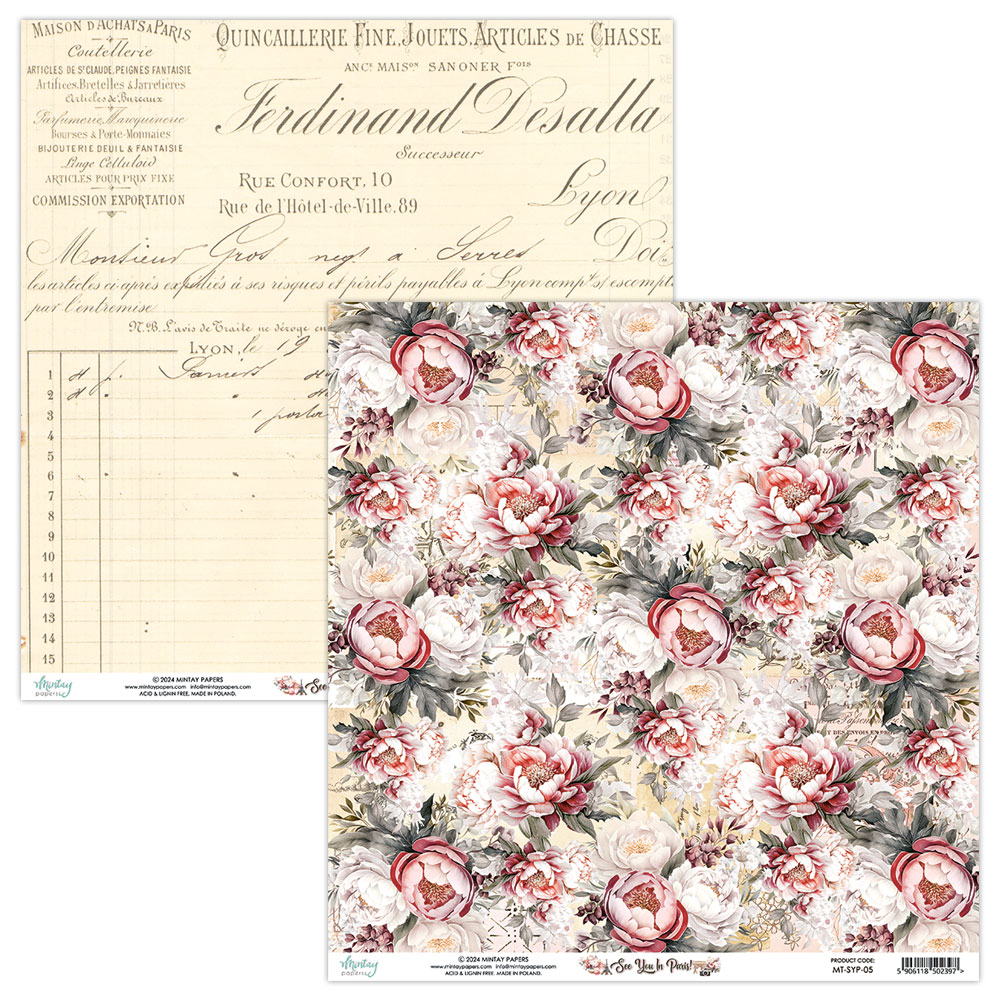 MAISON D'ACHATS À PARIS
Coutellerie
ARTICLES DE ST CLAUDE, PEIGNES FANTAISIE
Artifices, Bretelles & Jarretières
Articles de Bureaux
Parfumerie, Maroquinerie
Bourses & Porte-Monnaies
BIJOUTERIE DEUIL & FANTAISIE
Linge Celluloïd
ARTICLES POUR PRIX FIXE
COMMISSION EXPORTATION
QUINCAILLERIE FINE, JOUETS, ARTICLES DE CHASSE
ANCE MAISON SANONER FOIS
Ferdinand Desalla
Successeur
RUE CONFORT, 10
Rue de l'Hôtel-de-Ville, 89
Lyon
Doi
Monsieur Gros negt à Serres
les articles ci-après expédiés à ses risques et périls payables à Lyon compt st escompt
par l'entremise
N.B. L'avis de Traite ne déroge en
LYON, le 19
1
2
3
4
5
6
7
8
9
10
11
12
13
14
15
mintay
papers
© 2024 MINTAY PAPERS
www.mintaypapers.com info@mintaypapers.com
ACID & LIGNIN FREE. MADE IN POLAND.
See
DES ENVOIS EN
mintay
papers
© 2024 MINTAY PAPERS
www.mintaypapers.com info@mintaypapers.com
ACID & LIGNIN FREE. MADE IN POLAND.
See You In Paris!
PRODUCT CODE:
MT-SYP-05
5 906118 502397 >